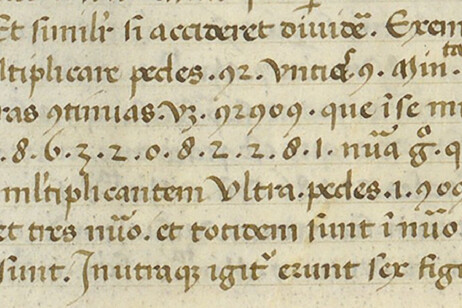 Et similr̃ si accideret diuidẽ. Exem
ltiplicare pedes. 42. Vntie 9. Min.
ras 9tinuas. Vꝫ. 92909. que ĩse mu
.8.6.3.2.0.8.2.2.8.1. nũa gͦ. q
mlr̃tiplicantem Vltra. pedes.1.
et tres nũo. et totidem sunt ĩ nũo
sunt. In utraqꝫ igitʳ erunt sex figu